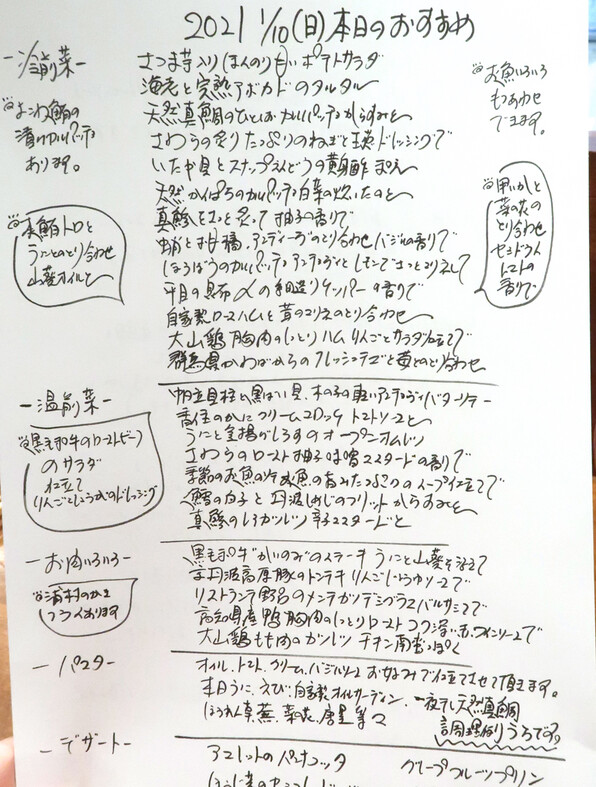 2021 1/10(日)本日のおすすめ
-冷前菜-
よこわ鮪の
漬けカルパッチョ
あります。
本鮪トロと
うにのとり合わせ
山葵オイルと
お魚いろいろ
もりあわせ
できます。
甲いかと
菜の花の
とり合わせ
セミドライ
トマトの
香りで
さつま芋入りほんのり甘いポテトサラダ
海老と完熟アボカドのタルタル
天然真鯛のひとしおカルパッチョからすみと
さわらの炙りたっぷりのねぎと玉葱ドレッシングで
いたや貝とスナップえんどうの黄身酢まあえ
天然かんぱちのカルパッチョ白菜の炊いたのと
真鯵をさっと炙って柚子の香りで
蛸と甘橘、アンディーブのとり合わせバジルの香りで
ほうぼうのカルパッチョアンチョヴィとレモンでさっとマリネして
平目の昆布〆の細造りケッパーの香りで
自家製ロースハムと茸のマリネのとり合わせ
大山鶏胸肉のしっとりハムりんごとサラダ仕立てで
群馬県かわばからのフレッシュチーズと苺とのとり合わせ
-温前菜-
黒毛和牛のローストビーフ
のサラダ
仕立て
りんごとしょうがのドレッシング
帆立貝柱と黒ばい貝、木の子の軽いアンチョヴィバターソテー
香住のかにクリームコロッケトマトソースと
うにと釜揚げしらすのオープンオムレツ
さわらのロースト柚子味噌マスタードの香りで
季節のお魚の冷お魚の旨みたっぷりのスープ仕立てで
鱈の白子と丹波しめじのフリットからすみと
真鯵のレアカツレツ辛子マスタードと
-お肉いろいろ-
浦村のかき
フライあります
黒毛和牛かいのみのステーキうにと山葵を添えて
京丹波高原豚のトンテキりんごしょうゆソースで
リストランテ野呂のメンチカツデミグラスバルサミコで
高知県産鴨胸肉のしっとりローストコク深い赤ワインソースで
大山鶏もも肉のカツレツチキン南蛮っぽく
-パスタ-
オイル、トマト、クリーム、バジルソースお好みで仕立てさせて頂きます。
本日うに、えび、自家製オイルサーディン、一夜干し天然真鯛
ほうれん草、蕪、菜の花、唐墨等々
調理例うらです。
-デザート-
アマレットのパンナコッタ
グレープフルーツプリン